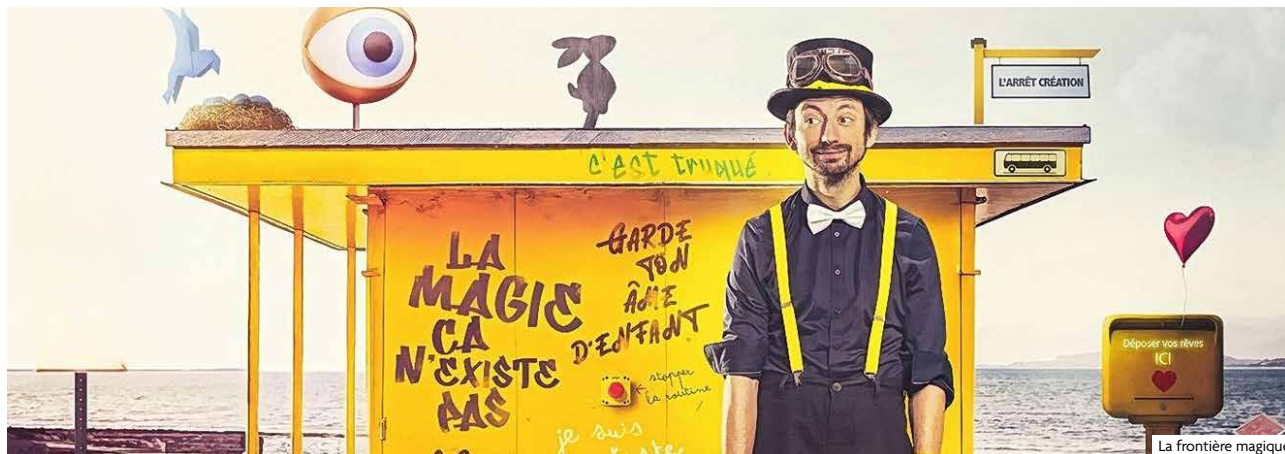 L'ARRÊT CRÉATION
c'est truqué
LA
MAGIE
CA
N'EXISTE
PAS
GARDE
TON
ÂME
D'ENFANT
stopper
la routine
je suis
Déposer vos rêves
ICI
La frontière magique